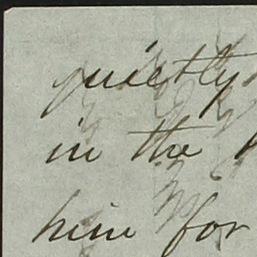 quietly
in the
him for